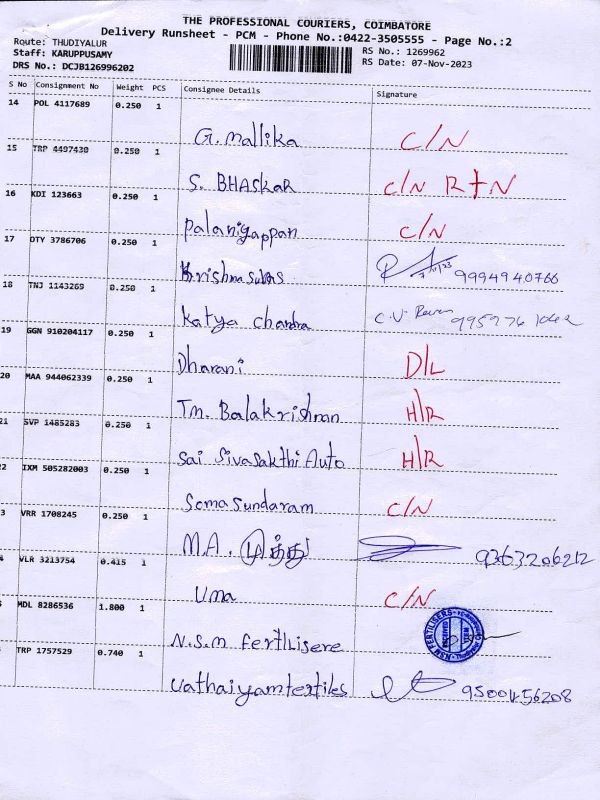 THE PROFESSIONAL COURIERS, COIMBATORE
Delivery Runsheet - PCM - Phone No.:0422-3505555 - Page No.:2
Route: THUDIYALUR
Staff: KARUPPUSAMY
DRS No.: DCJB126996202
RS No.: 1269962
RS Date: 07-Nov-2023
S No Consignment No Weight PCS Consignee Details Signature
14 POL 4117689 0.250 1
G. Mallika C/N
15 TRP 4497430 0.250 1
S. BHASKAR C/N R+N
16 KDI 123663 0.250 1
Palaniyappan C/N
17 OTY 3786706 0.250 1
9994940766
18 TNJ 1143269 0.250 1
Katya chandra C.V.
19 GGN 910204117 0.250 1
Dharani D/L
20 MAA 944062339 0.250 1
Tm. Balakrishnan H/R
21 SVP 1485283 0.250 1
Sai Sivasakthi Auto H/R
2 IXM 505282003 0.250 1
Somasundaram C/N
3 VRR 1708245 0.250 1
M.A. முத்து 9363206212
VLR 3213754 0.415 1
Uma C/N
MDL 8286536 1.800 1
N.S.M Fertilisere
NSM FERTILISERS
TRP 1757529 0.740 1
Vathaiyamtextiles 9500456208